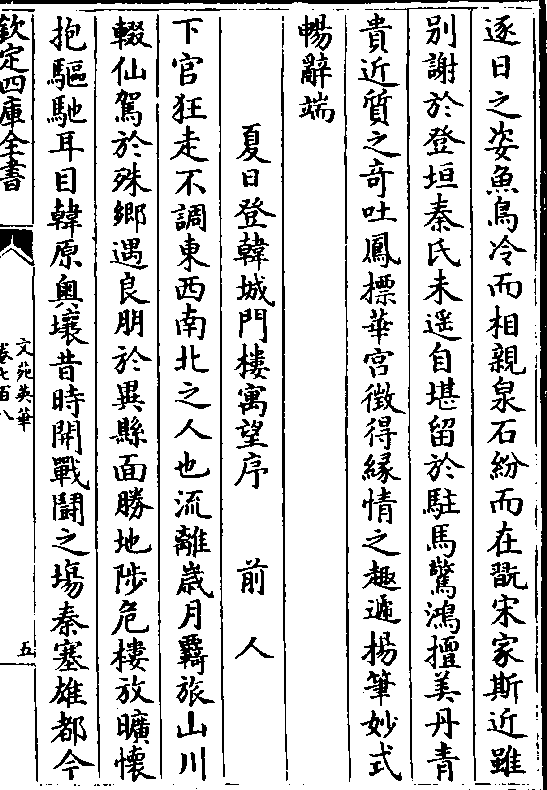 逐日之姿魚鳥冷而相親泉石紛而在翫宋家斯近雖
別謝於登垣秦氏未遥自堪留於駐馬驚鴻擅美丹青
貴近質之竒吐鳳摽華宫徴得縁情之趣遞揚筆妙式
暢辭端
夏日登韓城門樓寓望序 前人
下官狂走不調東西南北之人也流離歳月羇旅山川
輟仙駕於殊郷遇良朋於異縣面勝地陟危樓放曠懐
抱驅馳耳目韓原奥壤昔時開戰鬬之塲秦塞雄都今
欽定四庫全書
文苑英華
卷七百八
五